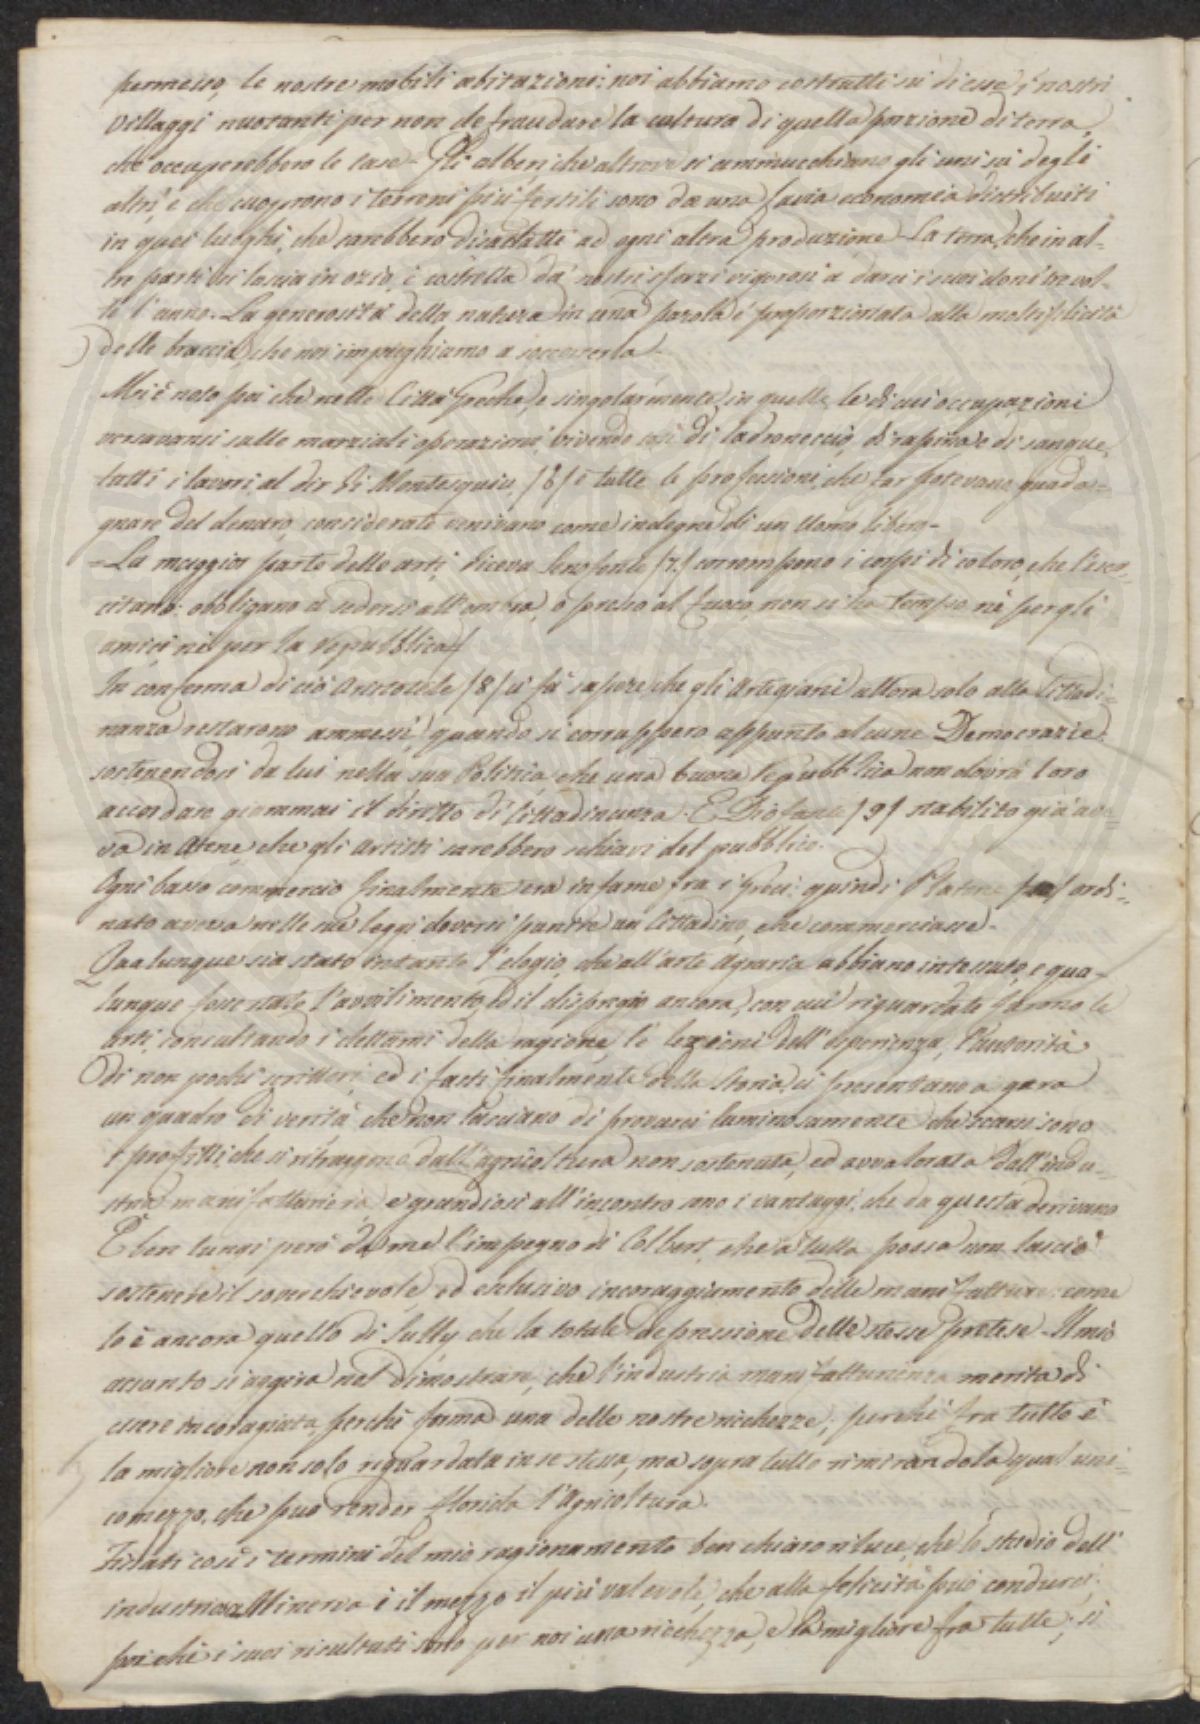 permesso, le nostre mobili abitazioni: noi abbiamo costrutti su di esse i nostri
Villaggi nuotanti per non defraudare la cultura di quella porzione di terra,
che occuperebbero le case. Gli alberi che altrove si ammucchiano gli uni su degli
altri, e che cuoprono i terreni più fertili sono da una savia economia distribuiti
in quei luoghi, che sarebbero disadatti ad ogni altra produzione. La terra, che in al=
tre parti si lascia in ozio, è costretta da' nostri sforzi vigorosi a darci i suoi doni tre vol=
te l'anno. La generosità della natura in una parola è proporzionata alla moltiplicità
delle braccia, che noi impieghiamo a soccorrerla.
Mi è noto poi che nelle Città Greche, e singolarmente in quelle, le di cui occupazioni
versavansi sulle marziali operazioni, vivendo così di ladroneccio, di rapina e di sangue,
tutti i lavori, al dir di Montesquiu, /6/ e tutte le professioni, che far potevano guada=
gnare del denaro, considerate venivano come indegne di un Uomo libero =
= La maggior parte delle arti, diceva Senofonte /7/ corrompono i corpi di coloro, che l'eser=
citano: obbligano a sedersi all'ombra, o presso al fuoco, non si ha tempo, nè per gli
amici, nè per la repubblica/
In conferma di ciò Aristotele /8/ ci fa sapere, che gli Artegiani allora solo alla Cittadi=
nanza restarono ammessi, quando si corruppero appunto alcune Democrazie:
sostenendosi da lui nella sua Politica, che una buona repubblica non dovrà loro
accordare giammai il diritto di Cittadinanza. E Diofante /9/ stabilito già ave=
va in Atene, che gli Artisti sarebbero schiavi del pubblico.
Ogni basso commercio finalmente era infame fra i Greci: quindi Platone ordi=
nato aveva nelle sue leggi doversi punire un Cittadino, che commerciasse.
Qualunque sia stato intanto l'elogio, che all'arte Agraria abbiano intessuto, e qua=
lunque fosse stato l'avvilimento, ed il dispregio ancora, con cui riguardate furono le
arti, consultando i dettami della ragione, le lezioni dell'esperienza, l'autorità
di non pochi scrittori, ed i fasti finalmente della Storia, ci presentano a gara
un quadro di verità, che non lasciano di provarci luminosamente che scarsi sono
i profitti, che si ritraggono dall'agricoltura non sostenuta, ed avvalorata dall'indu=
stria manifatturiera, e grandiosi all'incontro sono i vantaggi, che da questa derivano
È ben lungi però da me l'impegno di Colbert, che a tutta possa non lasciò
sostenere il soverchievole, ed esclusivo incoraggiamento delle manifatture: come
lo è ancora quello di Sully che la totale depressione delle stesse pretese. Il mio
assunto si aggira nel dimostrare, che l'industria manifatturiera merita di
essere incoraggiata, perchè forma una delle nostre ricchezze; perchè fra tutte è
la migliore non solo riguardata in se stessa, ma sopra tutto rimirandola qual uni=
co mezzo, che può render florida l'Agricoltura.
Fissati così i termini del mio ragionamento ben chiaro riluce, che lo studio dell'
industriosa Minerva è il mezzo il più valevole, che alla felicità può condurci;
poichè i suoi risultati sono per noi una ricchezza, e la migliore fra tutte; si